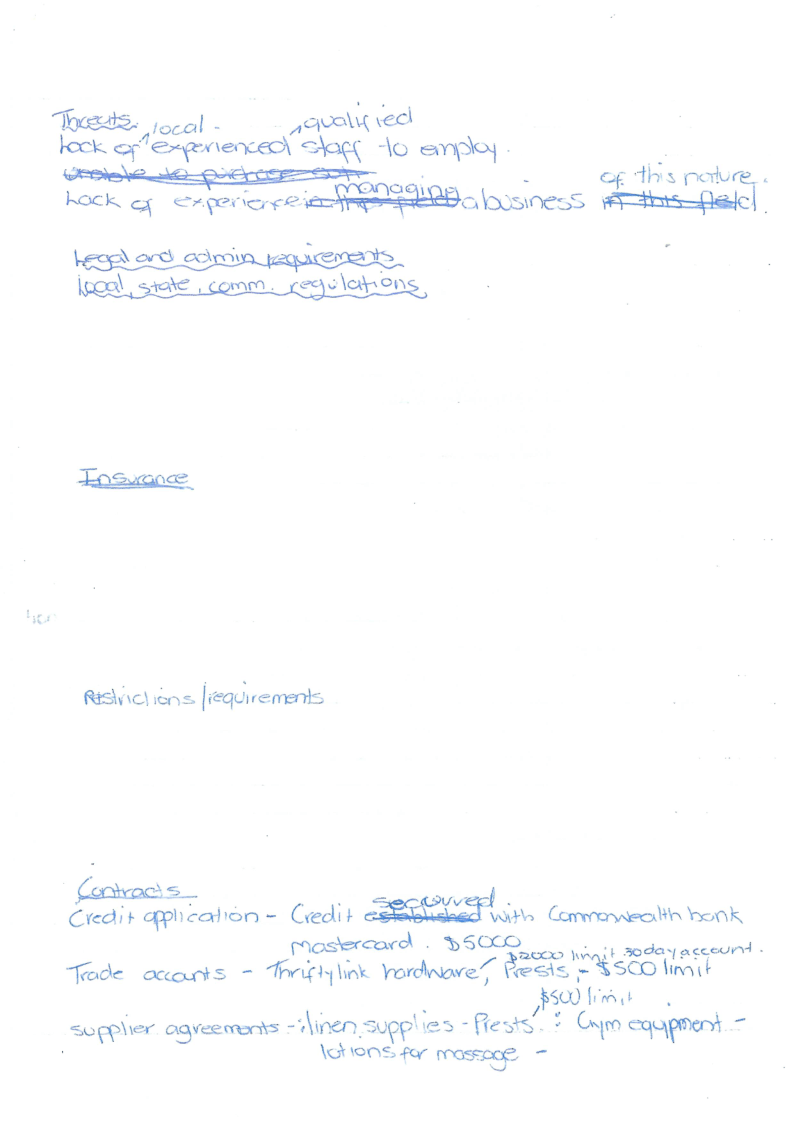 Threats.
Lack of local experienced qualified staff to employ.
unable to purchase
Lack of experience in this field managing a business in this field. of this nature.
Legal and admin requirements
local, state, comm. regulations
Insurance
Restrictions/requirements
Contracts
Credit application - Credit established secuured with Commonwealth bank
Mastercard. $5000
Trade accounts - Thriftylink hardware, $2000 limit 30 day account. Prests, - $500 limit
supplier agreements - : linen supplies - Prests, $500 limit : Gym equipment -
lotions for massage -